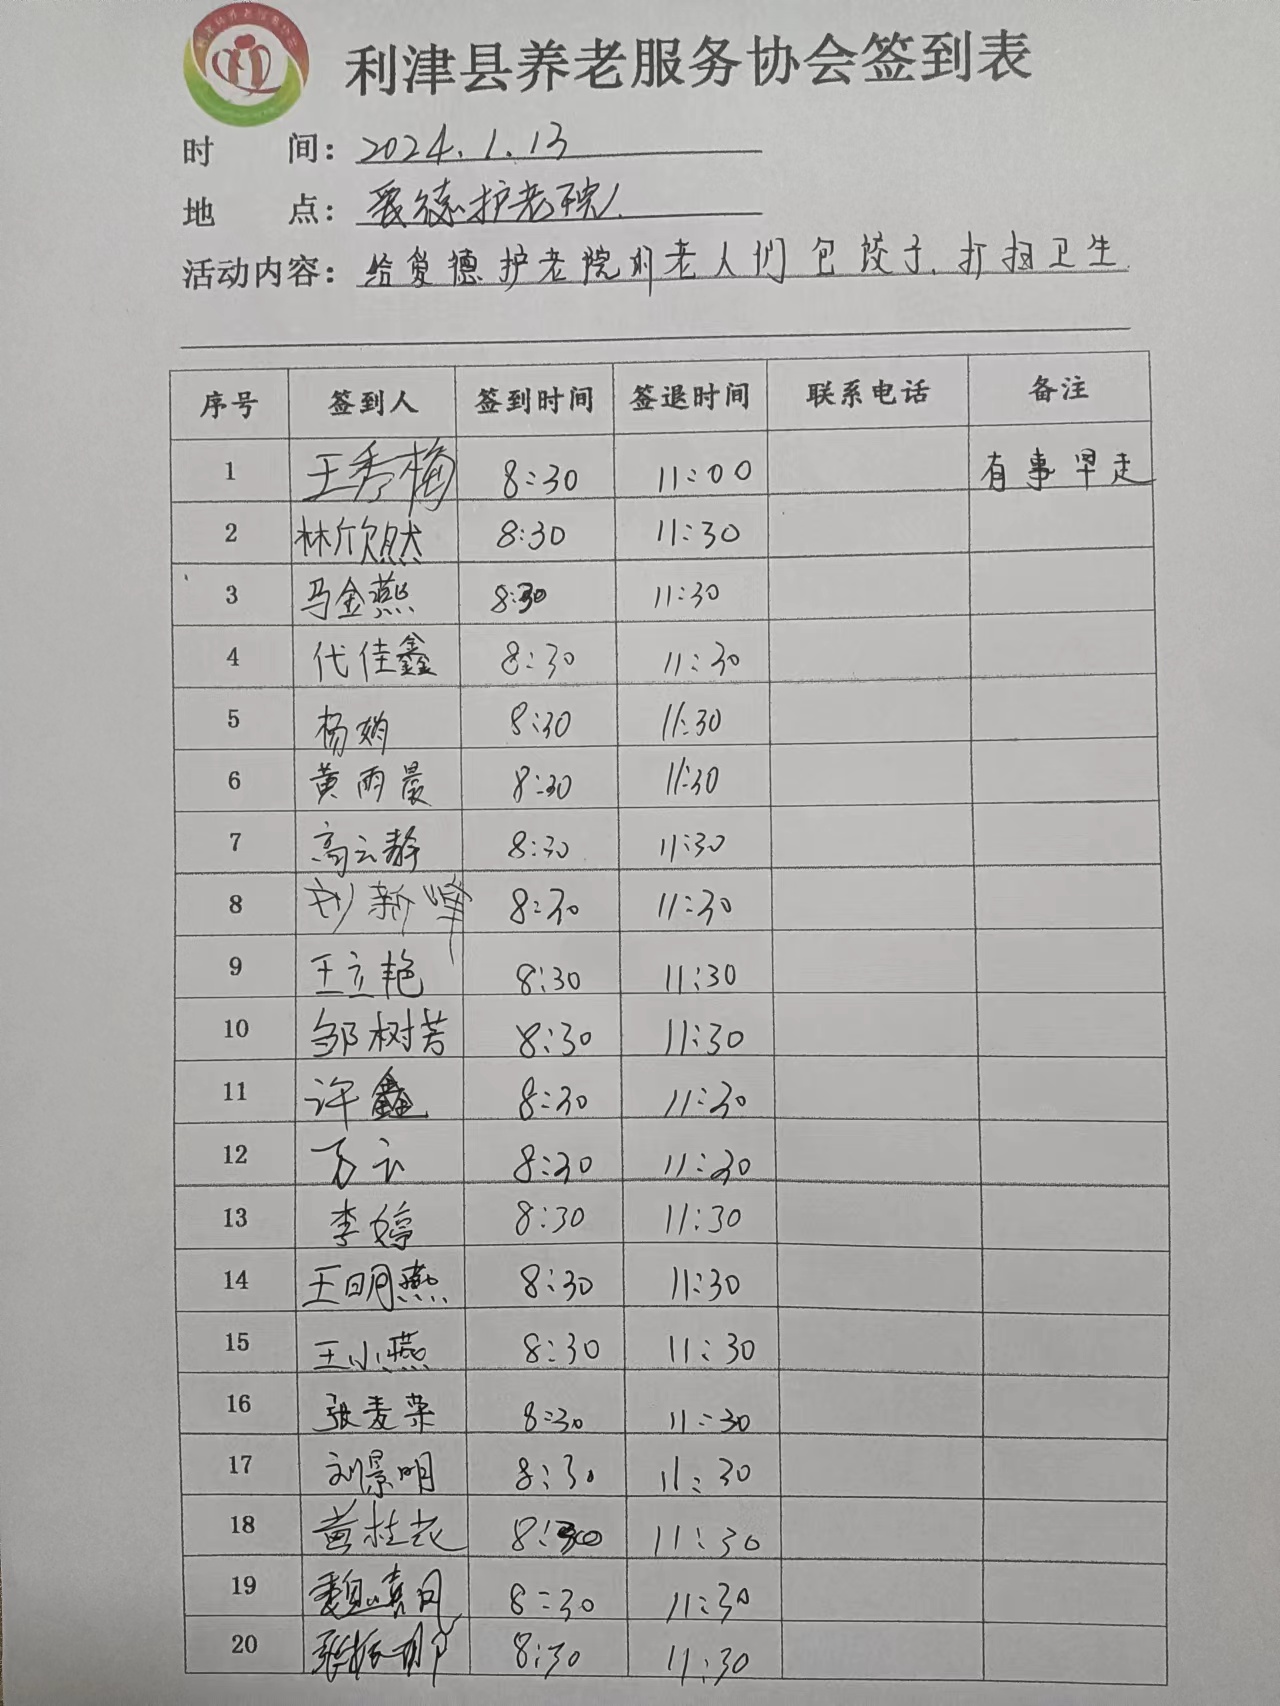 利津县养老服务协会签到表
时 间：2024.1.13
地 点：爱德护老院
活动内容：给爱德护老院的老人们包饺子、打扫卫生
序号 签到人 签到时间 签退时间 联系电话 备注
1 王秀梅 8:30 11:00 有事早走
2 林欣然 8:30 11:30
3 马金燕 8:30 11:30
4 代佳鑫 8:30 11:30
5 杨娟 8:30 11:30
6 黄雨晨 8:30 11:30
7 高云静 8:30 11:30
8 刘新峰 8:30 11:30
9 王立艳 8:30 11:30
10 邹树芳 8:30 11:30
11 许鑫 8:30 11:30
12 万云 8:30 11:30
13 李婷 8:30 11:30
14 王明燕 8:30 11:30
15 王小燕 8:30 11:30
16 张麦荣 8:30 11:30
17 刘景明 8:30 11:30
18 黄桂花 8:30 11:30
19 8:30 11:30
20 8:30 11:30